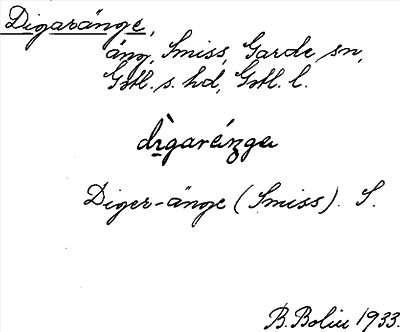 Digaränge,
äng, Smiss, Garde sn,
Gotl. s. hd, Gotl. l.
dìgaréŋga
Diger-änge (Smiss). S.
B. Bolin 1933.